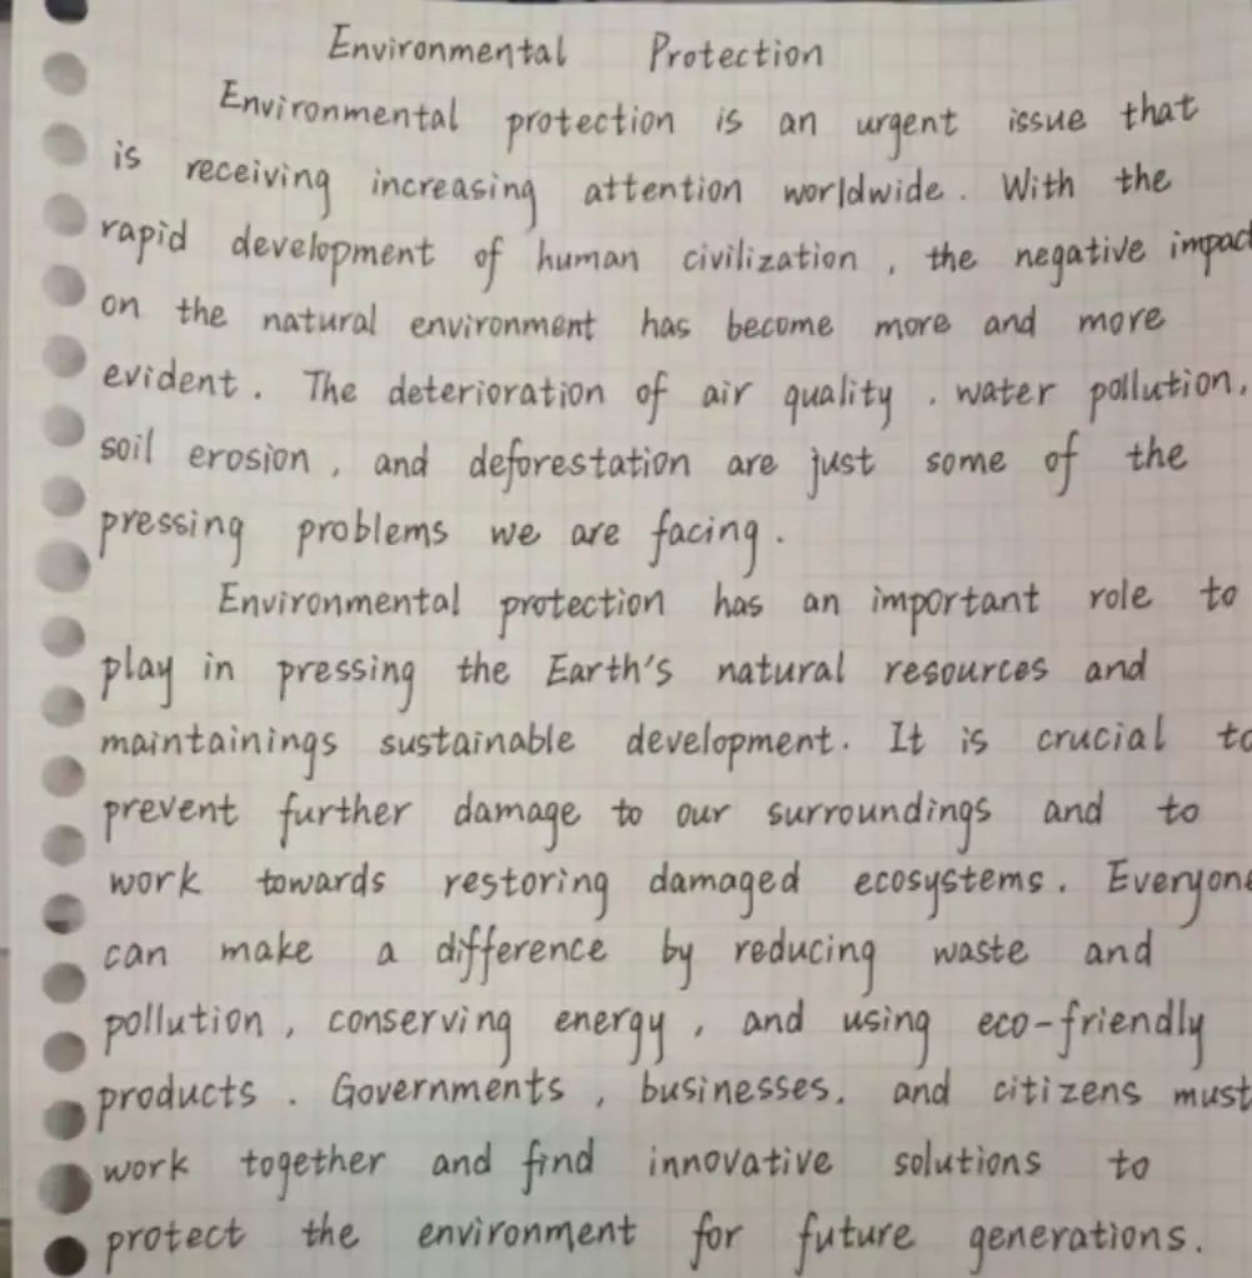 Environmental Protection
Environmental protection is an urgent issue that
is receiving increasing attention worldwide. With the
rapid development of human civilization, the negative impact
on the natural environment has become more and more
evident. The deterioration of air quality. water pollution,
soil erosion, and deforestation are just some of the
pressing problems we are facing.
Environmental protection has an important role to
play in pressing the Earth's natural resources and
maintainings sustainable development. It is crucial to
prevent further damage to our surroundings and to
work towards restoring damaged ecosystems. Everyone
can make a difference by reducing waste and
pollution, conserving energy, and using eco-friendly
products. Governments, businesses, and citizens must
work together and find innovative solutions to
protect the environment for future generations.